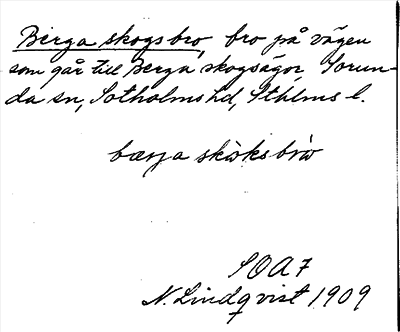 Berga skogsbro, bro på vägen
som går till Berga skogsägor, Sorun-
da sn, Sotholms hd, Sthlms l.
bærja skò̀ksbrò̀
SOA 7
N. Lindqvist 1909